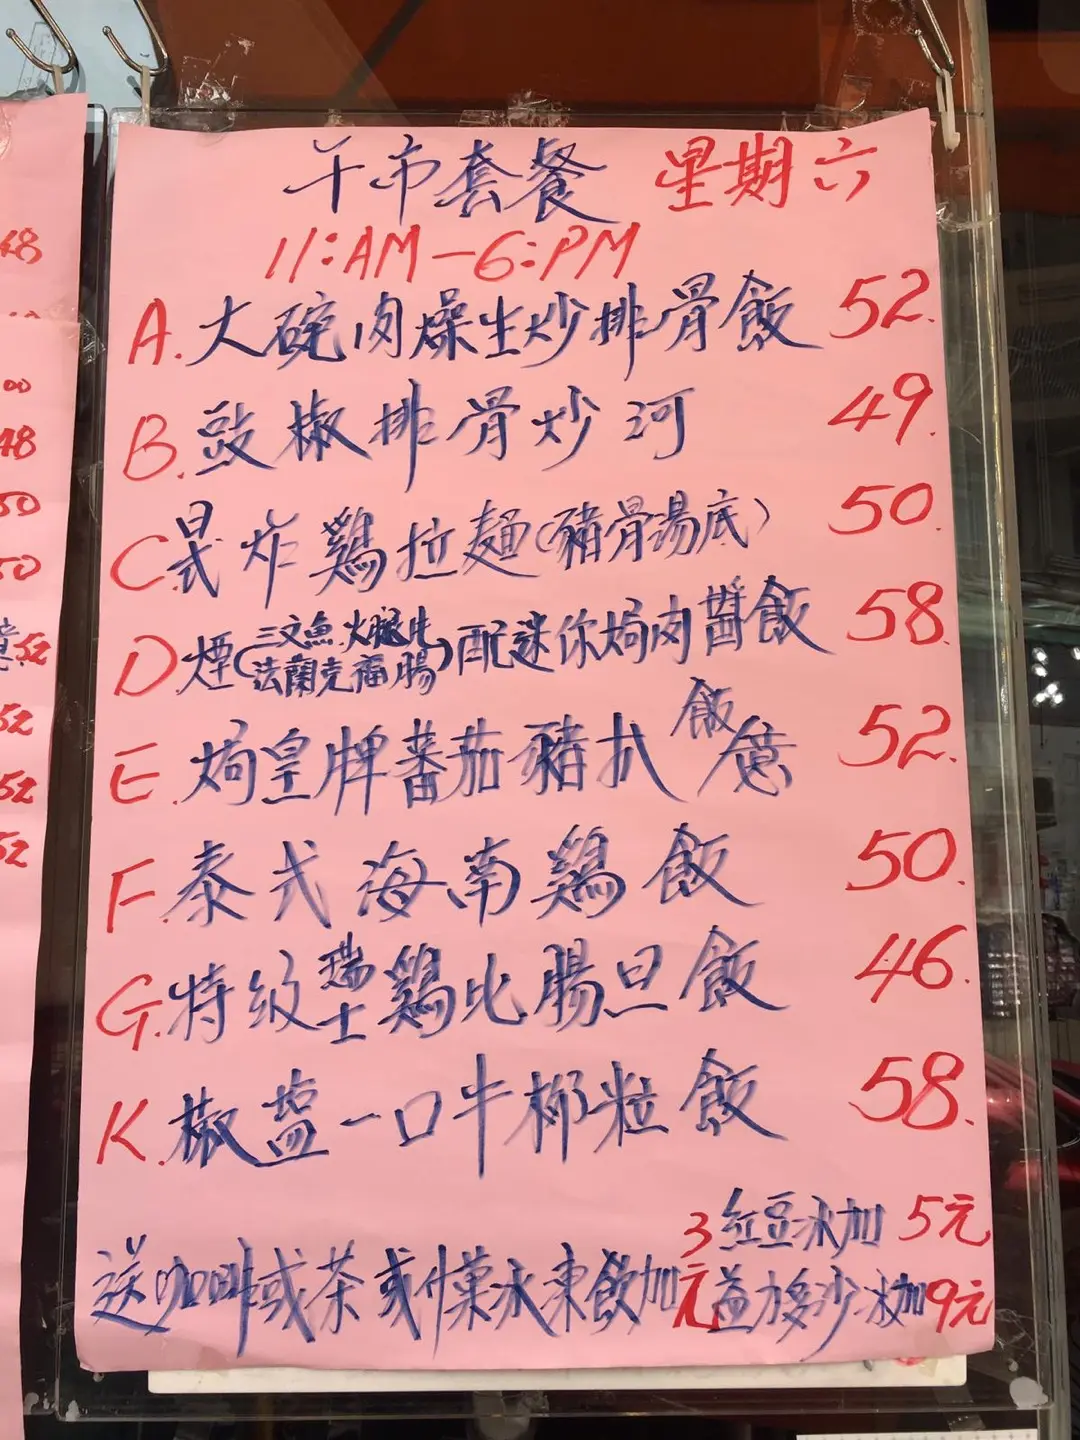 午市套餐 星期六
11:AM-6:PM
A.大碗肉燥生炒排骨飯 52.
B.豉椒排骨炒河 49.
C.炸鷄拉麵(豬骨湯底) 50.
D.煙(三文魚火腿片 法蘭克福腸)配迷你焗肉醬飯 58.
E.焗皇牌蕃茄豬扒飯意 52.
F.泰式海南鷄飯 50.
G.特級瑞士鷄比腸旦飯 46.
K.椒塩一口牛栁粒飯 58.
送咖啡或茶或什菓冰凍飲加3元
紅豆冰加5元
益力多沙冰加9元
48
00
48
50
50
52
52
52
52